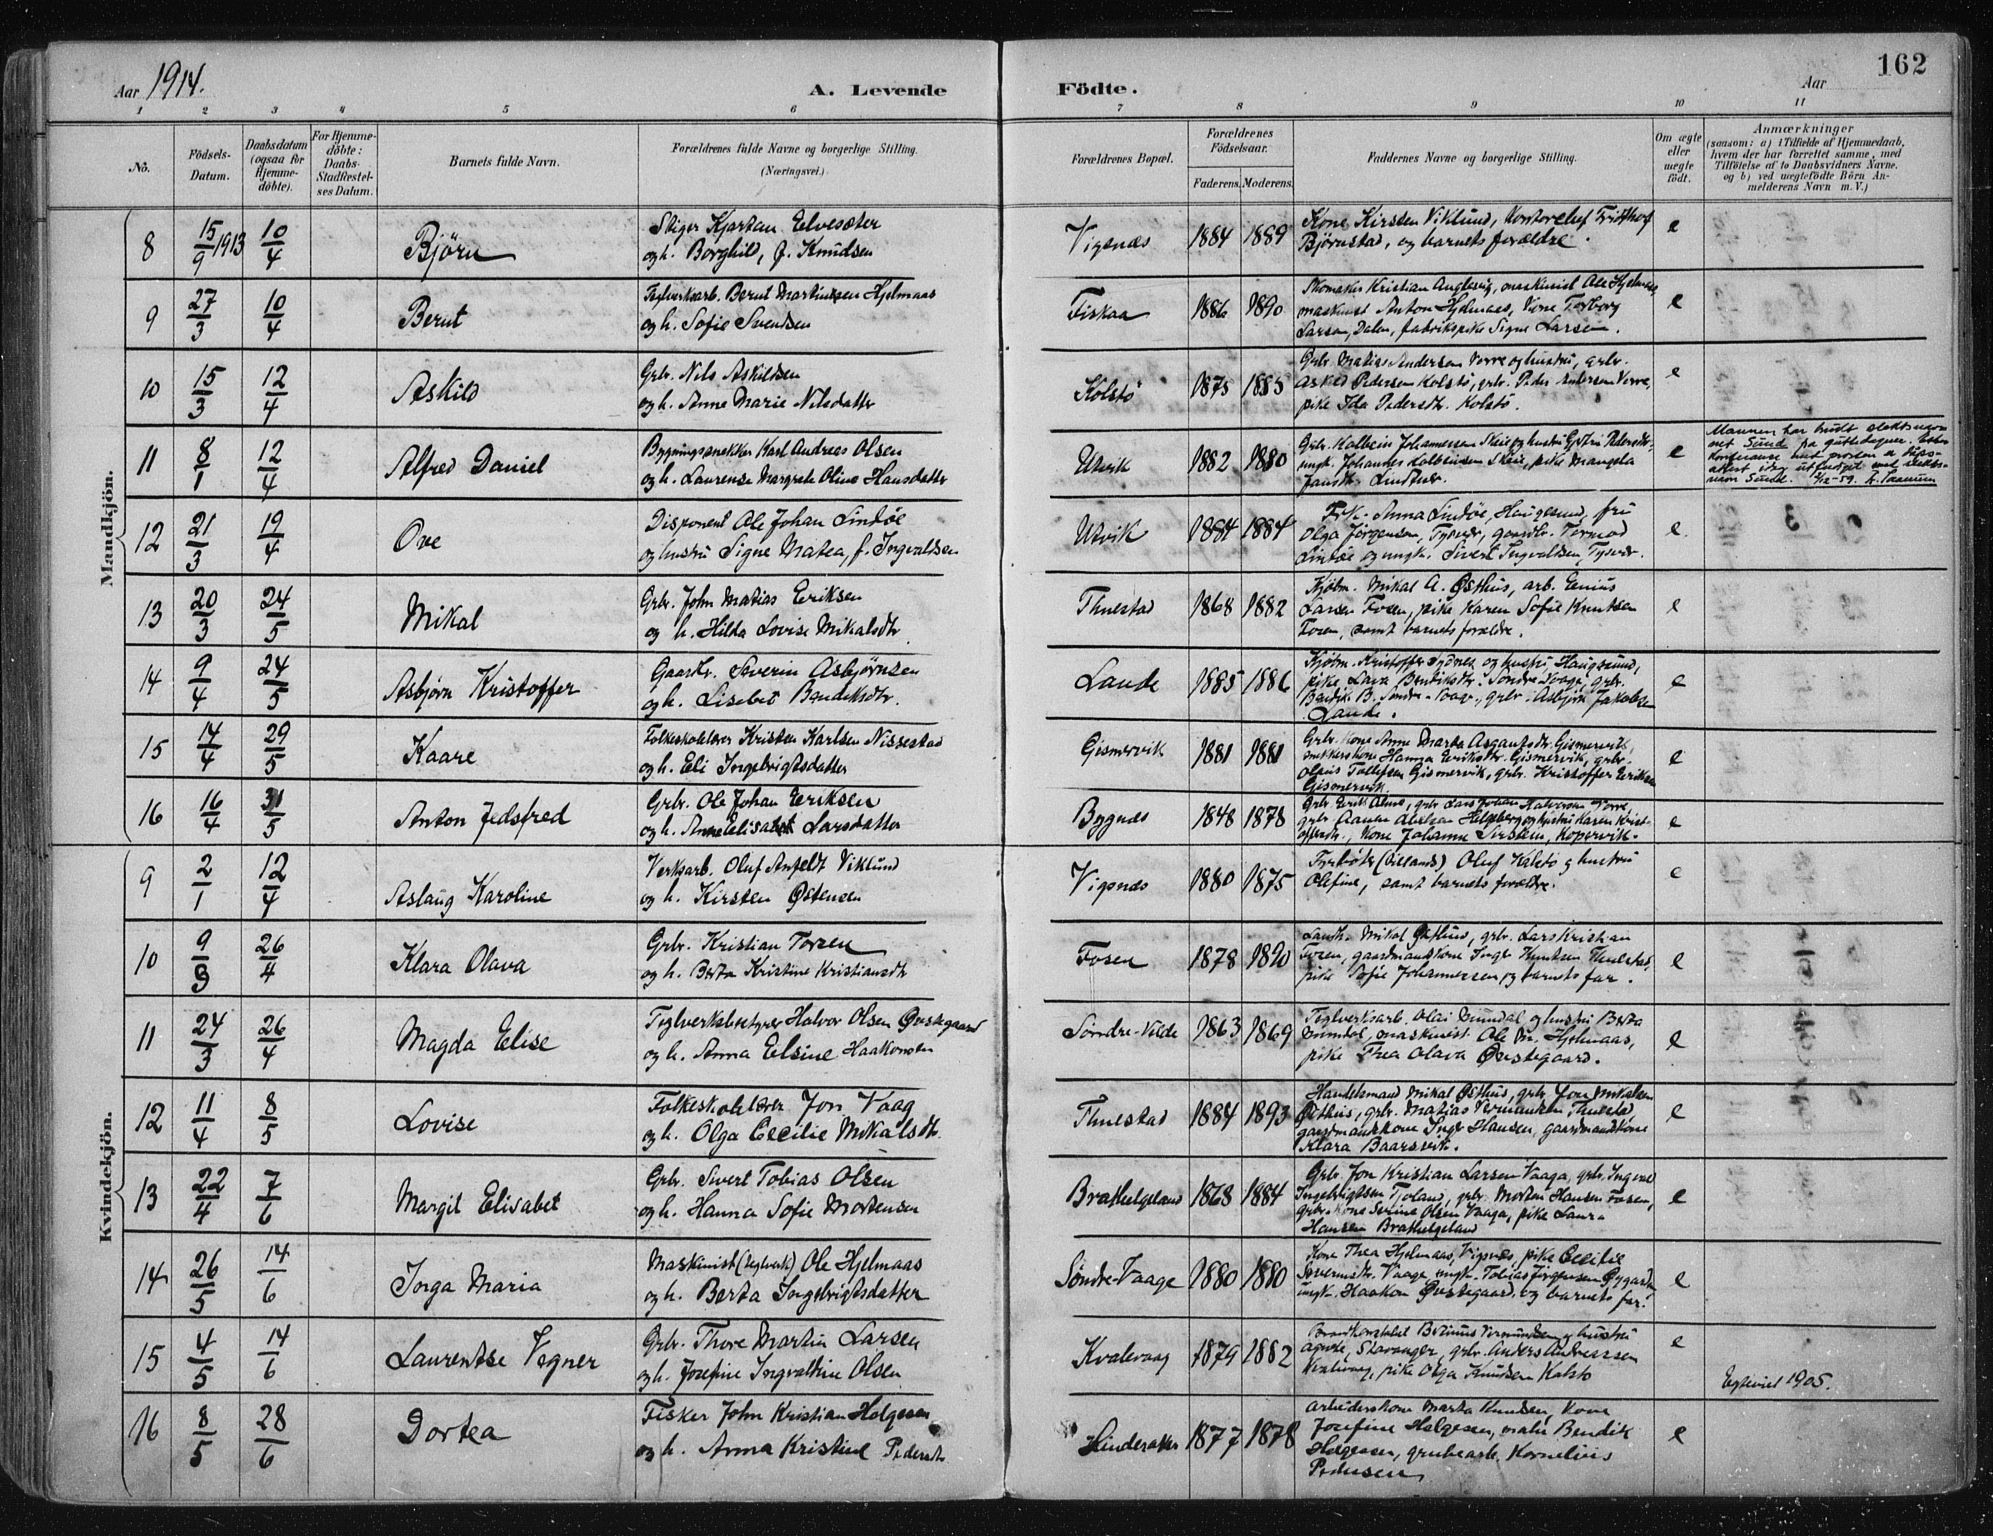 Aar 1914.
A. Levende Födte.
Aar
162
1 2 3 4 5 6 7 8 9 10 11
No.
Födsels-Datum.
Daabsdatum (ogsaa for Hjemme-döbte).
For Hjemme-döbte: Daabs-Stadfæstel-ses Datum.
Barnets fulde Navn.
Forældrenes fulde Navne og borgerlige Stilling. (Næringsvei.)
Forældrenes Bopæl.
Forældrenes Födselsaar.
Faderens. Moderens.
Faddernes Navne og borgerlige Stilling.
Om ægte eller uægte födt.
Anmærkninger
(saasom: a) i Tilfælde af Hjemmedaab,
hvem der har forrettet samme, med
Tilföielse af to Daabsvidners Navne.
og b) ved uægtefödte Börn An-
melderens Navn m. V.)
Mandkjön.
8 15/9 1913 10/4 Björn
Stiger Kjartan Elvesæter
og h. Borghild, f. Knudsen
Vigsnæs 1884 1889
Kone Kirsten Viklund, kontorchef Fridthof
Bjørnstad, og barnets forældre.
e
9 27/3 10/4 Bernt
Teglverksarb. Bernt Martinusen Hjelmaas
og h. Sofie Svendsen
Fiskaa 1886 1890
Kristian maskinist Ole Hjelmaas,
maskinist Anton Hjelmaas, Kone Torborg
Larsen, Dalen, fabrikspike Signe Larsen.
e
10 15/3 12/4 Askild
Grbr. Nils Askildsen
og h. Anne Marie Nilsdatter
Kolstö 1875 1885
Grbr. Matias Andersen Vorre og hustru, grbr.
Askild Pedersen Kolstø, grbr. Peder Andersen Vorre,
pike Ida Pedersdtr. Kolstø.
e
11 8/1 12/4 Alfred Daniel
Bygningssnekker Karl Andreas Olsen
og h. Laurense Margrete Oline Hansdatter
Utvik 1882 1880
Grbr. Kolbein Johannessen Skeie og hustru Pedersdtr.,
ungk. Johannes Kolbeinsen Skeie, pike Mangela
e
Mannen har brukt slektsnav-
net Sund på
12 21/3 19/4 Ove
Disponent Ole Johan Lindøe
og hustru Signe Matea, f. Ingvaldsen
Utvik 1884 1884
Frk. Anna Lindøe, Haugesund, fru
Olga Jørgensen, Tysvær, gaardbr. Tormod
Lindøe og ungk. Sivert Ingvaldsen, Tysvær.
e.
13 20/3 24/5 Mikal
Grbr. John Matias Eriksen
og h. Hilda Lovise Mikalsdtr.
Thuestad 1868 1882
Kjøbm. Mikal A. Østhus, arb. Enius
Larsen Fosen, pike Karen Sofie Knutsen
Fosen, samt barnets forældre.
e
14 9/4 24/5 Asbjørn Kristoffer
Gaardbr. Severin Asbjørnsen
og h. Lisebet Bendiksdtr.
Lande 1885 1886
Kjøbm. Kristoffer Sydnes og hustru, Haugesund,
pike Lava Bendiksdtr. Søndre Vaage, grbr.
Bendik B. Søndre-Vaage, grbr. Asbjørn Jakobsen
Lande.
e
15 14/4 29/5 Kaare
Folkeskolelærer Kristen Karlsen Nissestad
og h. Eli Ingebrigtsdatter
Gismervik 1881 1881
Grbr. kone Anne Marta Asgautsdtr. Gismervik,
snekkerskone Hanna Eriksdtr. Gismervik, grbr.
Tollefsen Gismervik, grbr. Kristoffer Eriksen
Gismervik.
e
16 16/4 31/5 Anton Fredsfred
Grbr. Ole Johan Eriksen
og h. Anne Elisabet Larsdatter
Bygnes 1848 1878
Grbr. Erik Alne, grbr. Lars Johan Halvorsen Vorre,
kone Johanne Kopervik.
e
Kvindekjön.
9 2/1 12/4 Aslaug Karoline
Verksarb. Oluf Anfeldt Viklund
og h. Kirsten Østensen
Vigsnæs 1880 1875
Fyrbøter Oluf Kalstø og hustru
Olefine, samt barnets forældre.
e
10 9/3 26/4 Klara Olava
Grbr. Kristian Torsen
og h. Berta Kristine Kristiansdtr
Fosen 1878 1890
Landh. Mikal Østhus, grbr. Lars Kristian
Fosen, gaardmandskone Inger Knutsen Thuestad,
pike Sofie Johannessen og barnets far.
e
11 24/3 26/4 Magda Elise
Teglverksbestyrer Halvor Olsen Øvstegaard
og h. Anna Elsine Haakonsen
Søndre-Velde 1863 1869
Teglverksarb. Olai Mundal og hustru Berta
Mundal, maskinist Ole M. Hjelmaas,
pike Thea Olava Øvstegaard.
e
12 11/4 8/5 Lovise
Folkeskolelærer Jon Vaag
og h. Olga Cecilie Mikalsdtr.
Thuestad 1884 1893
Handelsmand Mikal Østhus, grbr. Jon Mikalsen
Østhus, grbr. Matias Vermundsen Thuestad,
gaardmandskone Inger Hansen, gaardmandskone
Klara Baarsvik.
e
13 22/4 7/6 Margit Elisabet
Grbr. Sivert Tobias Olsen
og h. Hanna Sofie Mortensen
Brathelgeland 1868 1884
Grbr. Jon Kristian Larsen Vaaga, grbr. Ingvald
Ingebrigtsen Tjoland, grbr. Morten Hansen Fosen,
grbr. kone Serine Olsen Vaaga, pike Laura
Hansen Brathelgeland
e
14 26/5 14/6 Inga Maria
Maskinist (teglverk) Ole Hjelmaas
og h. Berta Ingebrigtsdatter
Søndre-Vaage 1880 1880
Kone Thea Hjelmaas, Vigsnes, pike Cecilie
Severinsdtr. Vaage, ungk. Tobias Jørgensen Øygarden,
ungk. Haakon Øvstegaard, og barnets far.
e
15 4/5 14/6 Laurentse Vegner
Grbr. Thore Martin Larsen
og h. Josefine Ingvaldine Olsen
Kvalevaag 1879 1882
Brandkonstabel Vermundsen og hustru
Agnete, Stavanger, grbr. Anders Andreassen
Kvalevaag, pike Olga Knudsen Kalstø
e
Egteviet 1905.
16 8/5 28/6 Dortea
Fisker John Kristian Helgesen
og h. Anna Kristine Pedersdtr
Hinderaker 1877 1878
Arbeiderskone Marta Knudsen, kone
Josefine Helgesen, Bendik
Helgesen, grubearb. Kornelius
Pedersen.
e